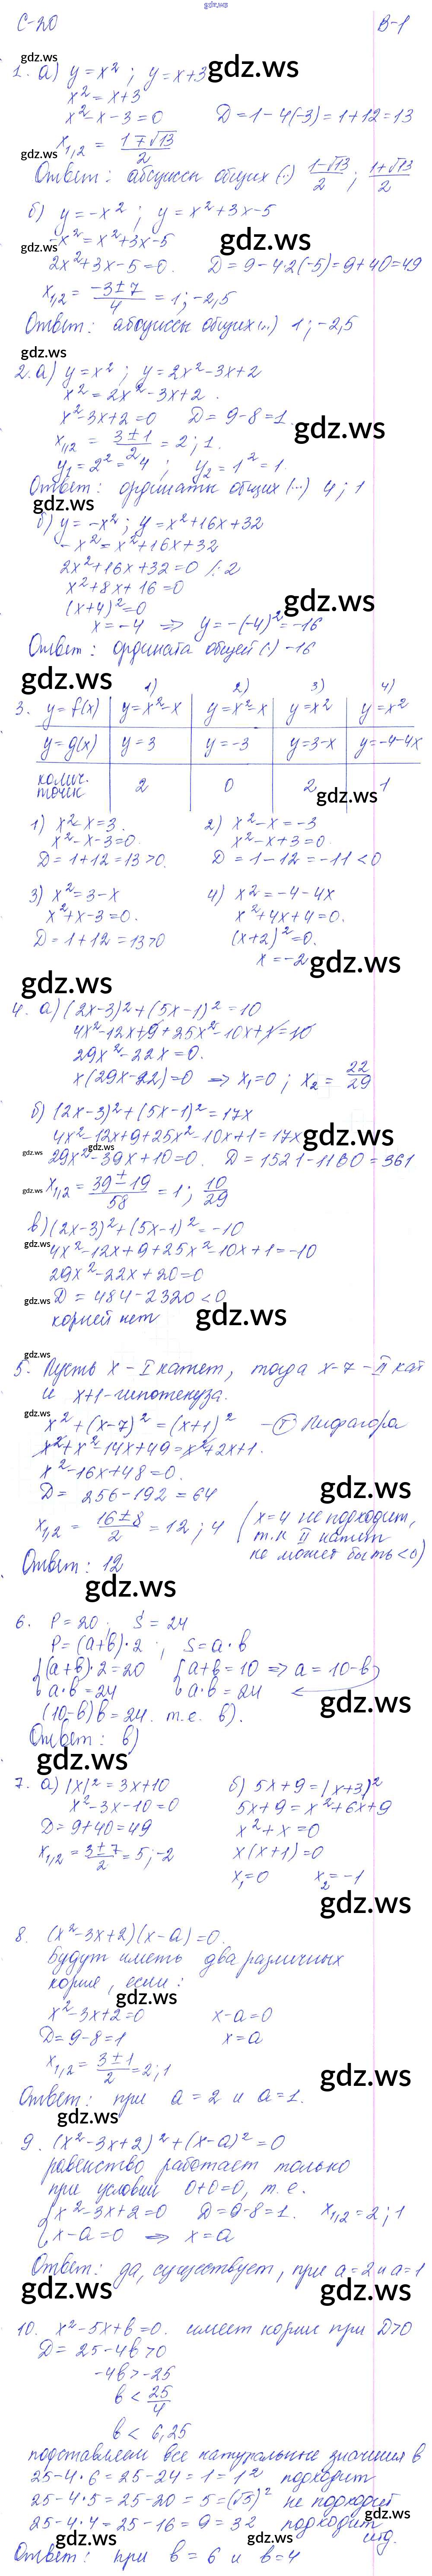 gdz.ws
С-20 В-1
gdz.ws gdz.ws
1. а) y = x² ; y = x+3
x² = x+3
x² - x - 3 = 0 D = 1 - 4(-3) = 1+12 = 13
gdz.ws
x₁,₂ = (1∓√13)/2
Ответ: абсциссы общих (·) (1-√13)/2 ; (1+√13)/2
б) y = -x² ; y = x²+3x-5
gdz.ws gdz.ws
-x² = x²+3x-5
2x²+3x-5=0. D = 9-4·2(-5) = 9+40=49
x₁,₂ = (-3±7)/4 = 1; -2,5
Ответ: абсциссы общих (..) 1; -2,5
gdz.ws
2. а) y = x² ; y = 2x²-3x+2
x² = 2x²-3x+2.
x²-3x+2=0 D=9-8=1.
gdz.ws
x₁,₂ = (3±1)/2 = 2; 1.
y₁=2²=4 ; y₂=1²=1.
Ответ: ординаты общих (..) 4; 1
gdz.ws
б) y=-x² ; y=x²+16x+32
-x² = x²+16x+32
2x²+16x+32=0 /:2
x²+8x+16=0
gdz.ws
(x+4)²=0
x=-4 ⇒ y=-(-4)²=-16
Ответ: ордината общей (·) -16
gdz.ws
1) 2) 3) 4)
3. y=f(x) y=x²-x y=x²-x y=x² y=x²
y=g(x) y=3 y=-3 y=3-x y=-4-4x
колич. точек 2 0 2 1
gdz.ws
1) x²-x=3. 2) x²-x=-3
x²-x-3=0. x²-x+3=0.
D=1+12=13>0. D=1-12=-11<0
3) x²=3-x 4) x²=-4-4x
x²+x-3=0. x²+4x+4=0.
D=1+12=13>0 (x+2)²=0.
x=-2
gdz.ws
gdz.ws
4. а) (2x-3)²+(5x-1)²=10
4x²-12x+9+25x²-10x+1=10
29x²-22x=0.
x(29x-22)=0 ⇒ x₁=0; x₂=22/29
б) (2x-3)²+(5x-1)²=17x
4x²-12x+9+25x²-10x+1=17x
gdz.ws gdz.ws gdz.ws
29x²-39x+10=0. D=1521-1160=361
gdz.ws
x₁,₂ = (39±19)/58 = 1; 10/29
в) (2x-3)²+(5x-1)²=-10
gdz.ws
4x²-12x+9+25x²-10x+1=-10
29x²-22x+20=0
gdz.ws
D=484-2320<0
корней нет gdz.ws
gdz.ws
5. Пусть x - I катет, тогда x-7 - II кат
и x+1 - гипотенуза.
gdz.ws
x²+(x-7)²=(x+1)² - Т Пифагора
x²+x²-14x+49=x²+2x+1.
x²-16x+48=0.
D=256-192=64
gdz.ws
x₁,₂ = (16±8)/2 = 12; 4 (x=4 не подходит,
т.к II катет
не может быть <0)
Ответ: 12
gdz.ws
6. P=20 ; S=24
P=(a+b)·2 ; S=a·b
(a+b)·2=20 a+b=10 ⇒ a=10-b
a·b=24 a·b=24
gdz.ws
(10-b)b=24. т.е. в).
Ответ: в)
gdz.ws
7. а) |x|²=3x+10 б) 5x+9=(x+3)²
x²-3x-10=0 5x+9=x²+6x+9
D=9+40=49 x²+x=0
x₁,₂ = (3±7)/2 = 5; -2 x(x+1)=0
x₁=0 x₂=-1
gdz.ws
8. (x²-3x+2)(x-a)=0.
будут иметь два различных
корня, если:
gdz.ws
x²-3x+2=0 x-a=0
D=9-8=1 x=a
x₁,₂ = (3±1)/2 = 2; 1
gdz.ws
Ответ: при a=2 и a=1.
gdz.ws
9. (x²-3x+2)²+(x-a)²=0
равенство работает только
при условии 0+0=0, т.е.
x²-3x+2=0 D=9-8=1. x₁,₂=2; 1
x-a=0 ⇒ x=a
Ответ: да, существует, при a=2 и a=1
gdz.ws gdz.ws
10. x²-5x+b=0. имеет корни при D>0
D=25-4b>0
-4b>-25
b<25/4
b<6,25
подставляем все натуральные значения b
25-4·6=25-24=1=1² подходит
25-4·5=25-20=5=(√5)² не подходит
gdz.ws
25-4·4=25-16=9=3² подходит
итд.
gdz.ws gdz.ws
Ответ: при b=6 и b=4